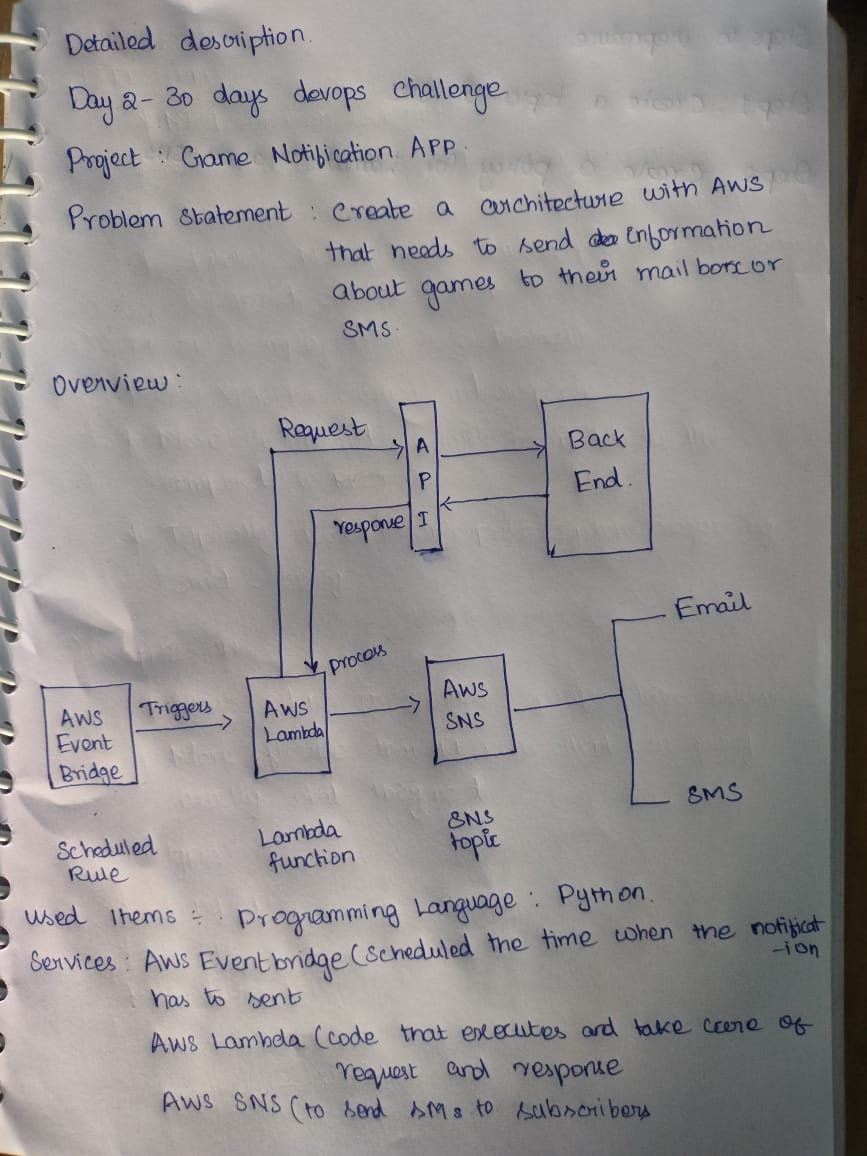 Detailed description.
Day 2 - 30 days devops challenge
Project : Game Notification APP.
Problem Statement : Create a architecture with AWS
that needs to send information
about games to their mail box or
SMS.
Overview :
Request
API
Back
End.
response
Email
process
AWS
Event
Bridge
Triggers
AWS
Lambda
AWS
SNS
SMS
Scheduled
Rule
Lambda
function
SNS
topic
Used Items :- Programming Language : Python.
Services : AWS Eventbridge (Scheduled the time when the notificat
-ion
has to sent
AWS Lambda (code that executes and take care of
request and response
AWS SNS (to send SMS to subscribers